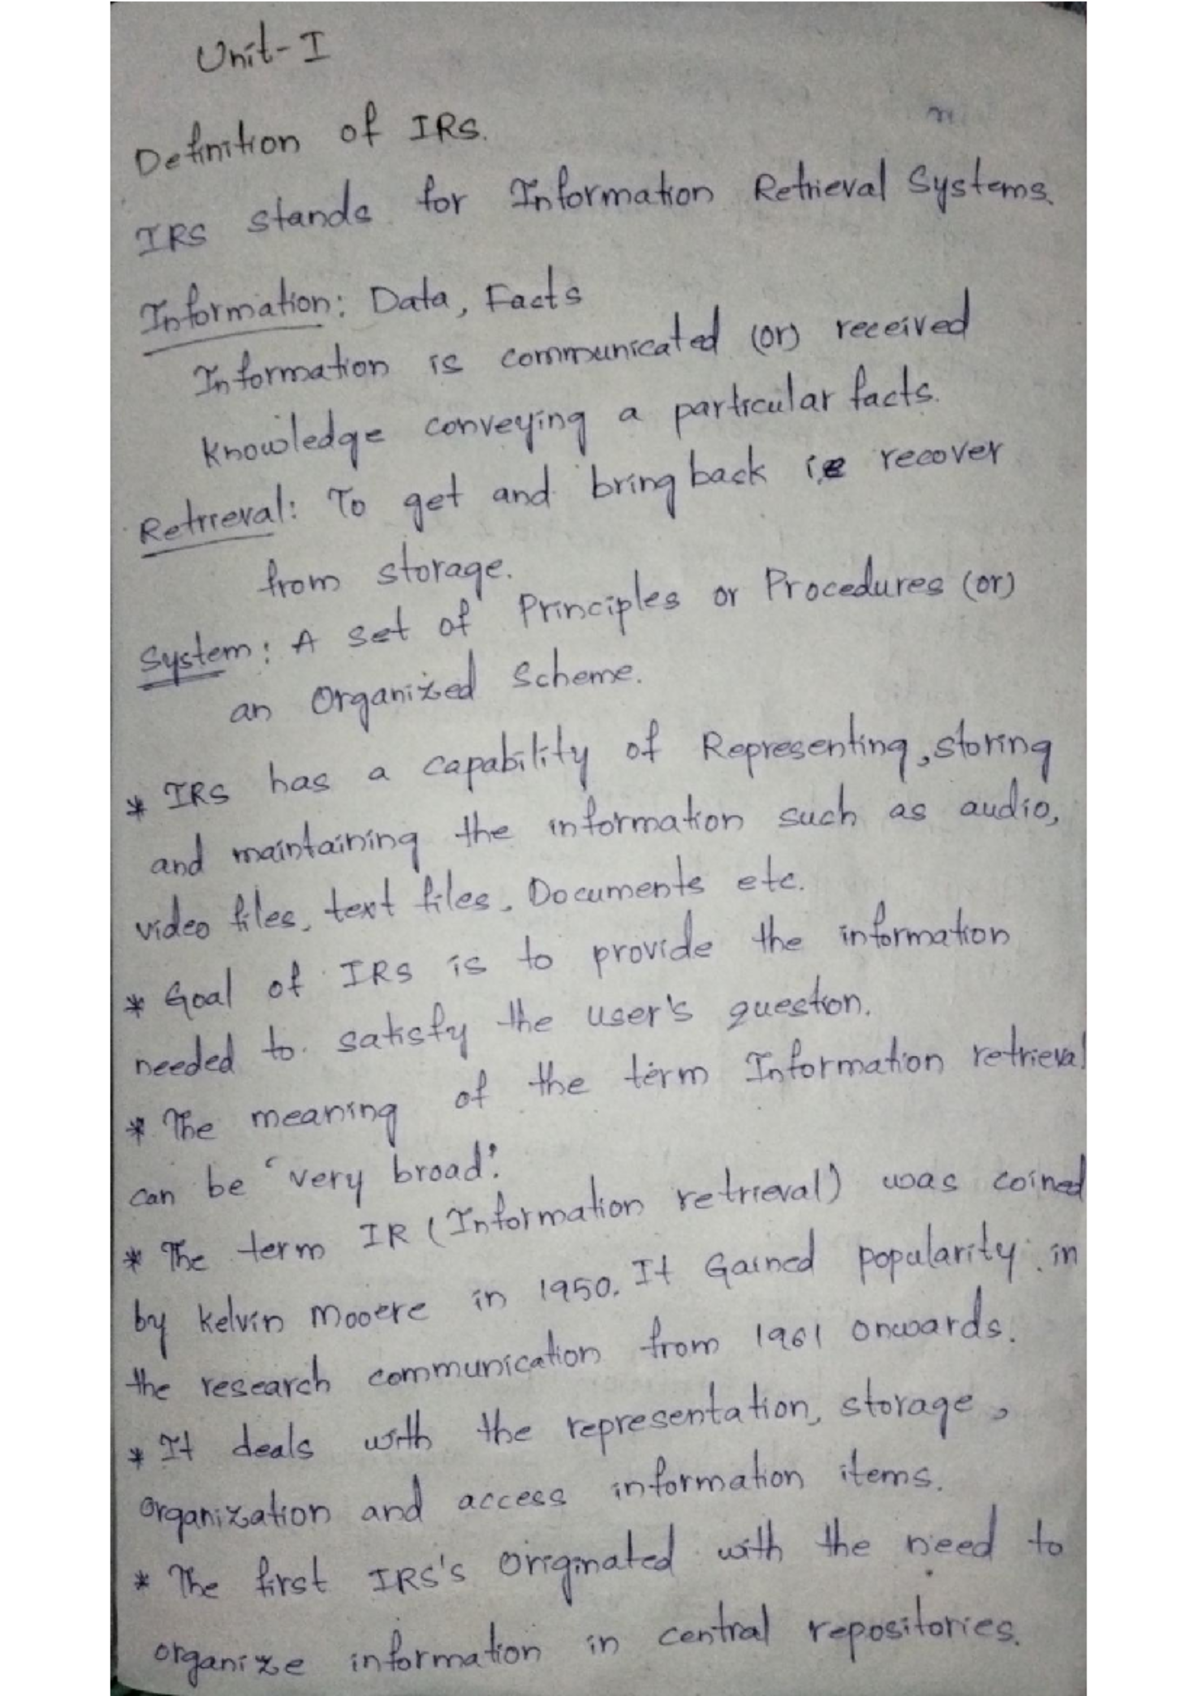 Unit-I
Definition of IRS.
IRS stands for Information Retrieval Systems.
Information: Data, Facts
Information is communicated (or) received
knowledge conveying a particular facts.
Retrieval: To get and bring back i.e recover
from storage.
System: A set of Principles or Procedures (or)
an Organized Scheme.
* IRS has a capability of Representing, storing
and maintaining the information such as audio,
video files, text files, Documents etc.
* Goal of IRS is to provide the information
needed to satisfy the user's question.
* The meaning of the term Information retrieval
can be 'very broad'.
* The term IR (Information retrieval) was coined
by kelvin Mooere in 1950. It Gained popularity in
the research communication from 1961 onwards.
* It deals with the representation, storage,
organization and access information items.
* The first IRS's originated with the need to
organize information in central repositories.